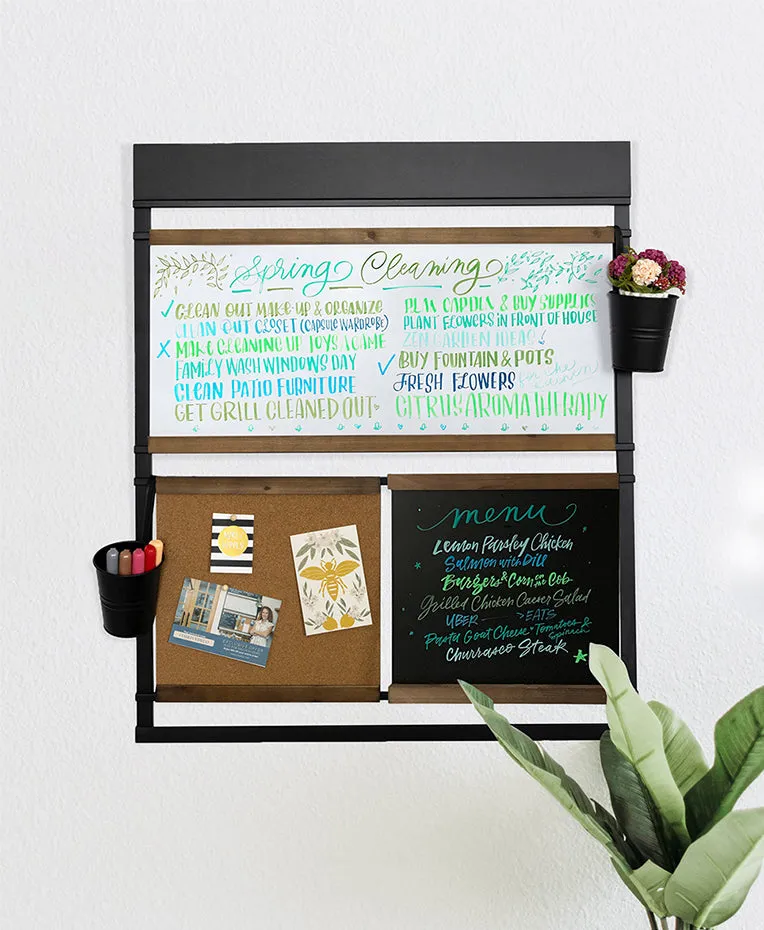 Spring Cleaning
CLEAN OUT MAKE-UP & ORGANIZE
CLEAN OUT CLOSET (CAPSULE WARDROBE)
MAKE CLEANING UP TOYS A GAME
FAMILY WASH WINDOWS DAY
CLEAN PATIO FURNITURE
GET GRILL CLEANED OUT
PLAN GARDEN & BUY SUPPLIES
PLANT FLOWERS IN FRONT OF HOUSE
ZEN GARDEN IDEAS
BUY FOUNTAIN & POTS
FRESH FLOWERS for the kitchen
CITRUS AROMATHERAPY
menu
Lemon Parsley Chicken
Salmon with Dill
Burgers & Corn on the Cob
Grilled Chicken Caesar Salad
UBER EATS
Pasta Goat Cheese Tomatoes & Spinach
Churrasco Steak